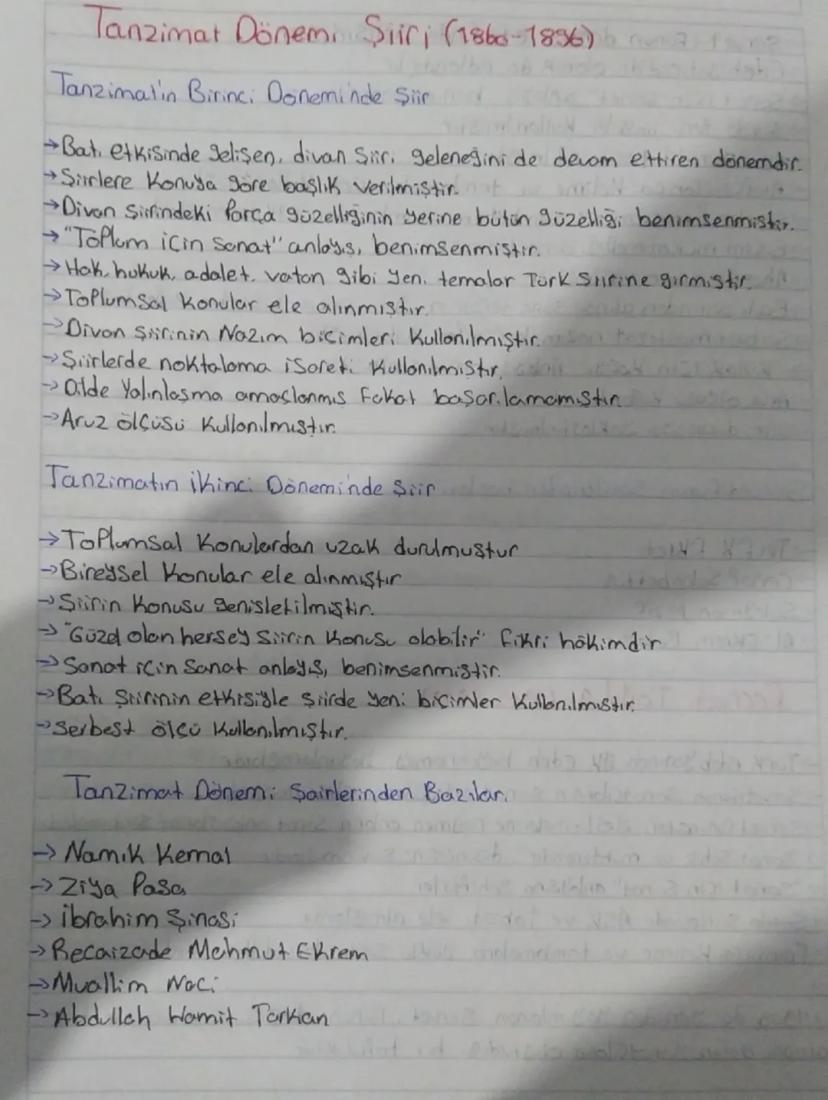 Tanzimat Dönemi Şiiri (1860-1896)
Tanzimat'ın Birinci Döneminde Şiir
→ Batı etkisinde gelişen, divan şiiri geleneğini de devam ettiren dönemdir.
→ Şiirlere konuya göre başlık verilmiştir.
→ Divan şiirindeki Parça güzelliğinin yerine bütün güzelliği benimsenmiştir.
→ "Toplum için sanat" anlayışı benimsenmiştir.
→ Hak, hukuk, adalet, vatan gibi yeni temalar Türk şiirine girmiştir.
→ Toplumsal konular ele alınmıştır.
→ Divan şiirinin Nazım biçimleri kullanılmıştır.
→ Şiirlerde noktalama işareti kullanılmıştır.
→ Dilde Yalınlaşma amaçlanmış Fakat başarılamamıştır
→ Aruz ölçüsü kullanılmıştır.
Tanzimatın ikinci Döneminde Şiir
→ Toplumsal konulardan uzak durulmuştur
→ Bireysel konular ele alınmıştır
→ Şiirin konusu genişletilmiştir.
→ "Güzel olan herşey şiirin konusu olabilir" fikri hâkimdir
→ Sanat için sanat anlayışı benimsenmiştir.
→ Batı şiirinin etkisiyle şiirde yeni biçimler kullanılmıştır.
→ Serbest ölçü kullanılmıştır.
Tanzimat Dönemi Şairlerinden Bazıları
→ Namık Kemal
→ Ziya Paşa
→ İbrahim Şinasi
→ Recaizade Mehmut Ekrem
→ Muallim Naci
→ Abdullah Hamit Tarhan